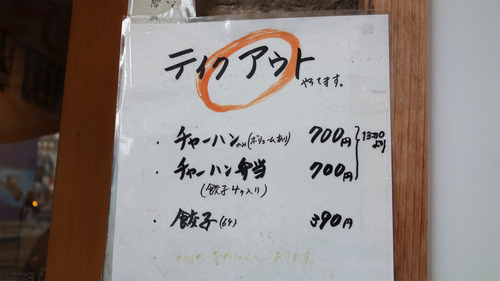 テイクアウト
やってます。
・チャーハンのみ(ボリュームあり) 700円
・チャーハン弁当 700円
(餃子4ヶ入り)
13:00より
・餃子(6ヶ) 390円